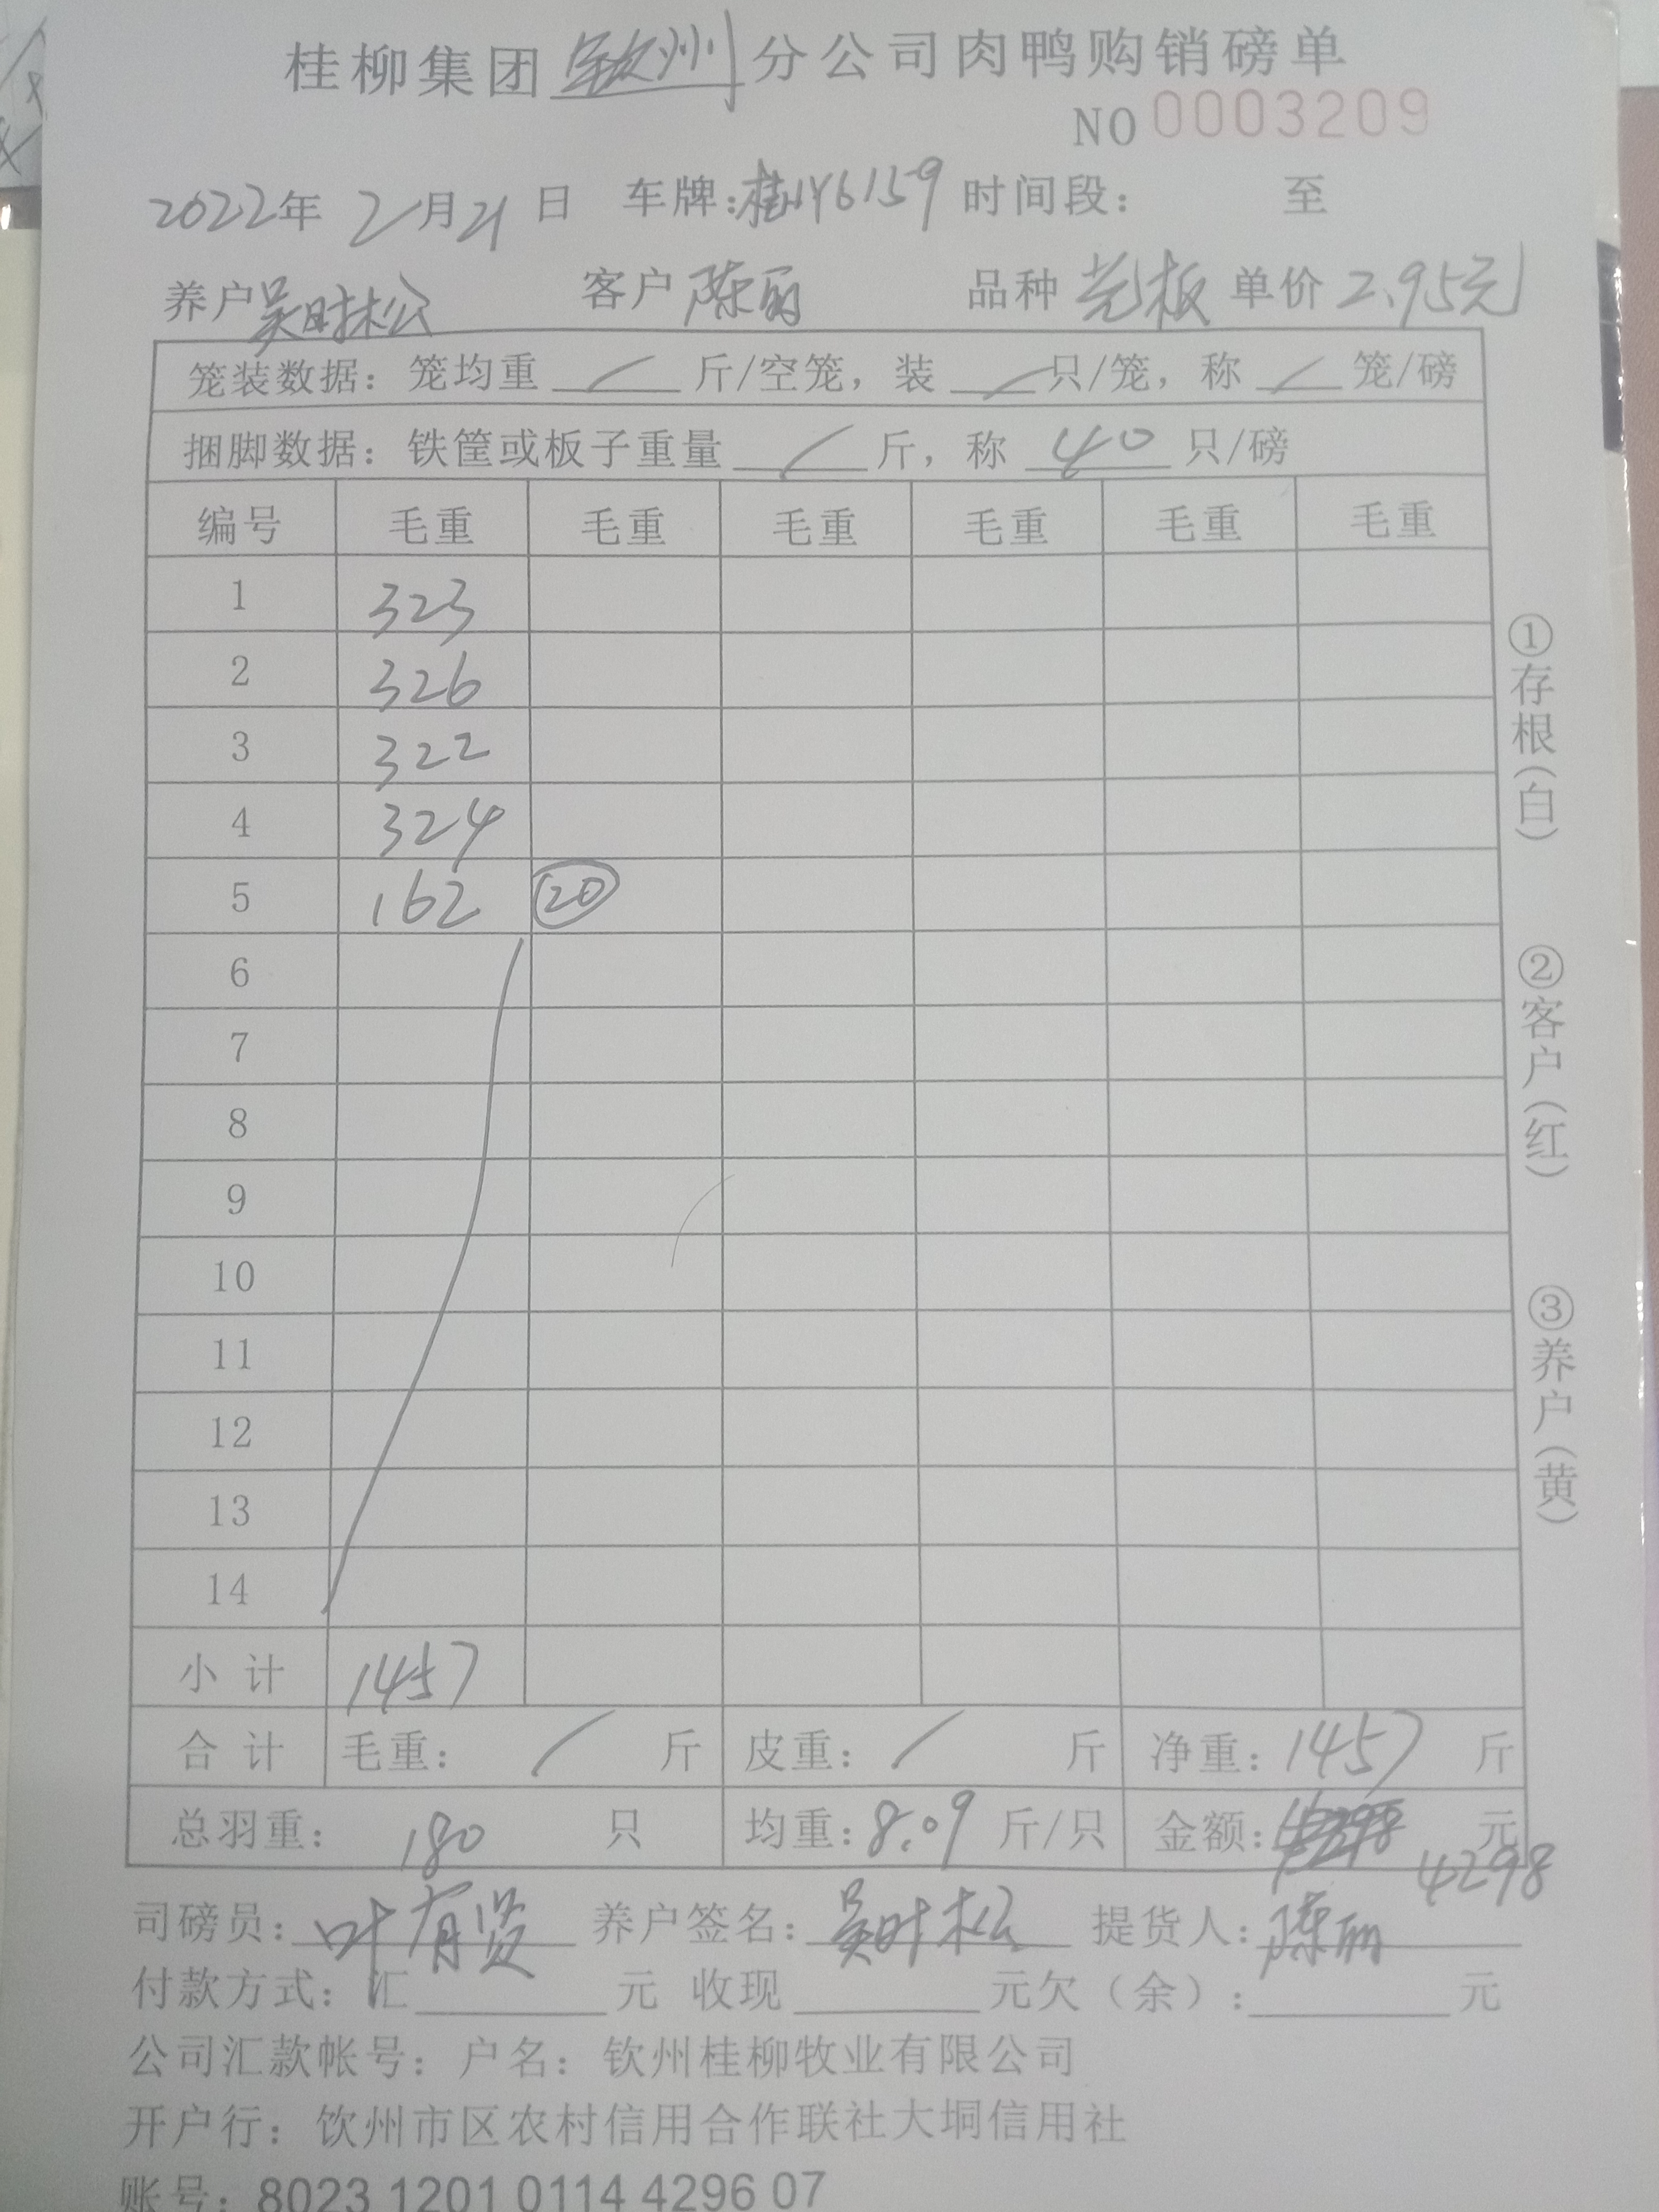 桂柳集团钦州分公司肉鸭购销磅单
NO 0003209
2022年 2月21日 车牌:桂NY6159 时间段: 至
养户 吴时松 客户 陈丽 品种 光板 单价 2.95元
笼装数据: 笼均重 / 斤/空笼, 装 / 只/笼, 称 / 笼/磅
捆脚数据: 铁筐或板子重量 / 斤, 称 40 只/磅
编号 毛重 毛重 毛重 毛重 毛重 毛重
1 323
2 326
3 322
4 324
5 162 ⑳
6
7
8
9
10
11
12
13
14
小 计 1457
合 计 毛重: / 斤 皮重: / 斤 净重: 1457 斤
总羽重: 180 只 均重: 8.09 斤/只 金额: 元
4298
司磅员: 叶有贤 养户签名: 吴时松 提货人: 陈丽
付款方式: 汇 元 收现 元欠(余): 元
公司汇款帐号: 户名: 钦州桂柳牧业有限公司
开户行: 饮州市区农村信用合作联社大垌信用社
账号: 8023 1201 0114 4296 07
①存根(白)
②客户(红)
③养户(黄)